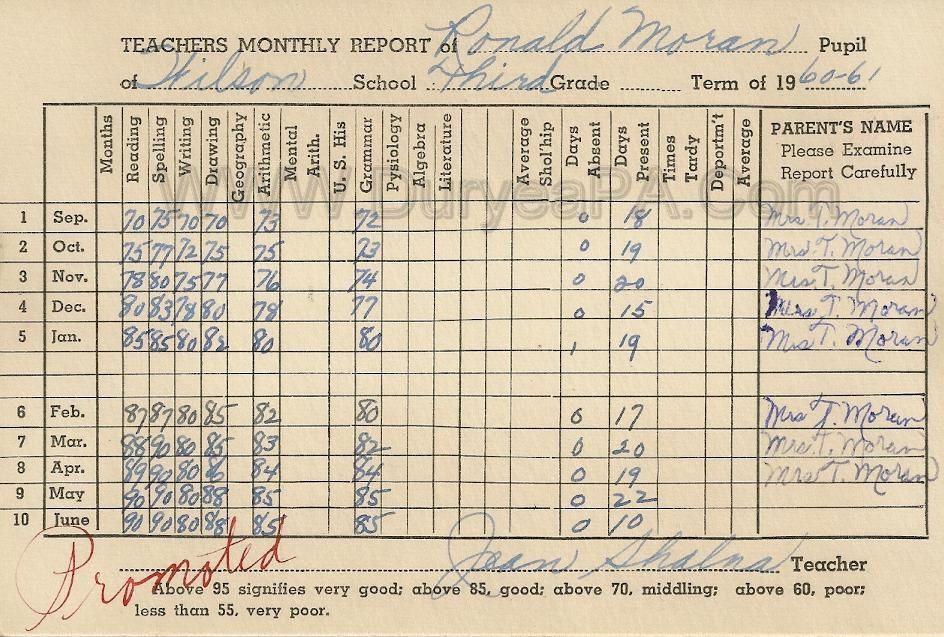 TEACHERS MONTHLY REPORT of Ronald Moran Pupil
of Wilson School Third Grade Term of 1960-61
Months Reading Spelling Writing Drawing Geography Arithmetic Mental Arith. U. S. His Grammar Pysiology Algebra Literature Average Shol'hip Days Absent Days Present Times Tardy Deportm't Average PARENT'S NAME
Please Examine
Report Carefully
www.DuryeaPA.Com
1 Sep. 70 75 70 70 73 72 0 18 Mrs. T. Moran
2 Oct. 75 77 72 75 75 73 0 19 Mrs. T. Moran
3 Nov. 78 80 75 77 76 74 0 20 Mrs. T. Moran
4 Dec. 80 83 78 80 78 77 0 15 Mrs. T. Moran
5 Jan. 85 85 80 82 80 80 1 19 Mrs T. Moran
6 Feb. 87 87 80 85 82 80 0 17 Mrs T. Moran
7 Mar. 88 90 80 85 83 82 0 20 Mrs. T. Moran
8 Apr. 89 90 80 86 84 84 0 19 Mrs T. Moran
9 May 90 90 80 88 85 85 0 22
10 June 90 90 80 88 85 85 0 10
Promoted
Jean Teacher
Above 95 signifies very good; above 85, good; above 70, middling; above 60, poor;
less than 55, very poor.